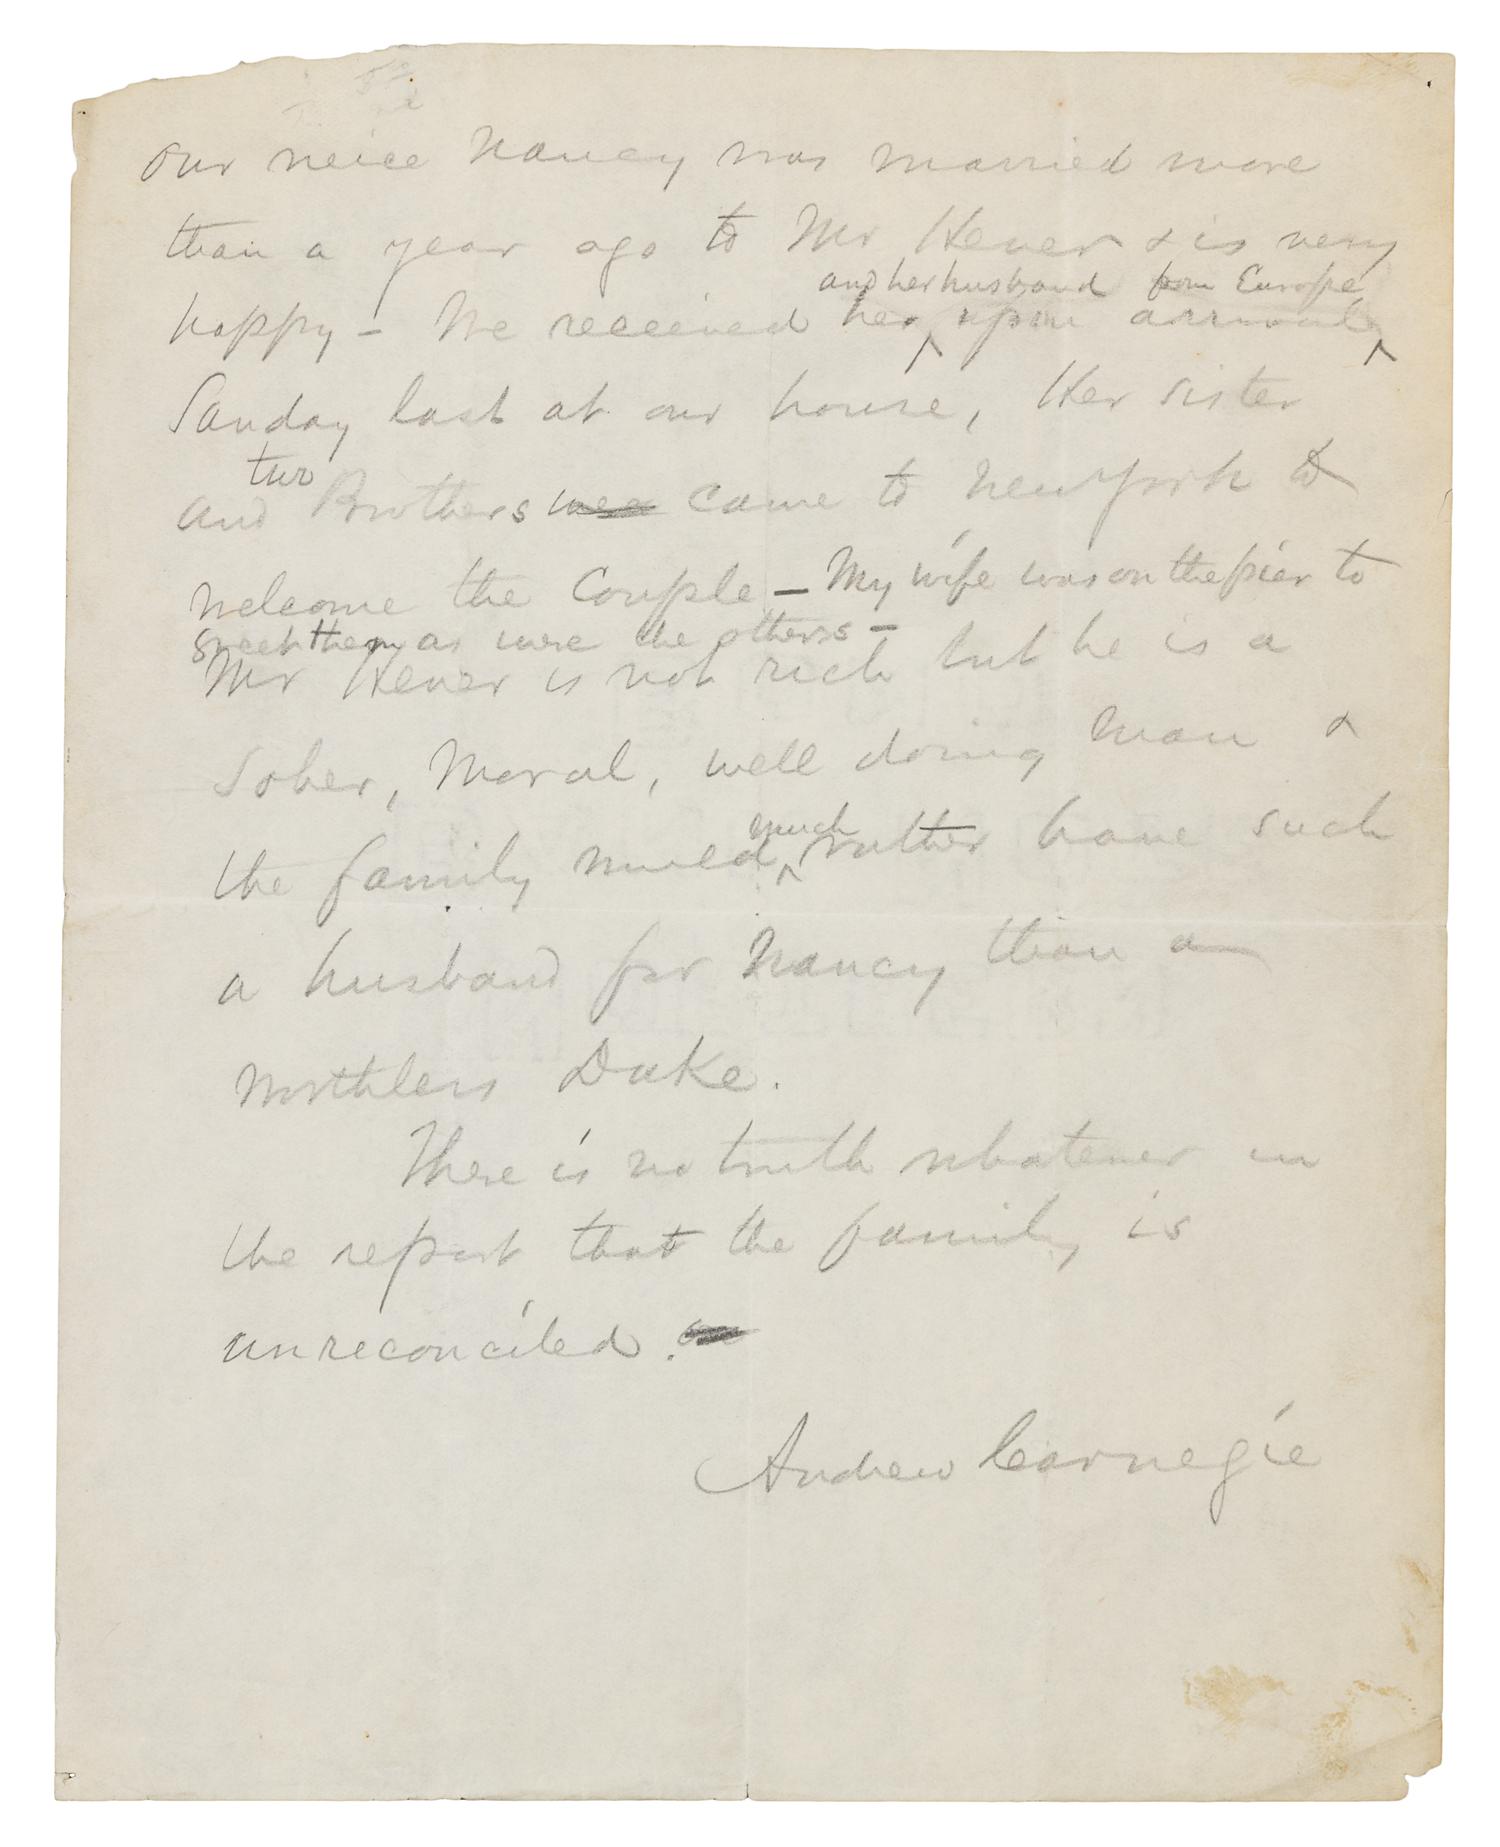 our neice Nancy was married more
than a year ago to Mr Hever & is very
and her husband from Europe
happy – We received her, upon arrival,
Sunday last at our house, Her sister
two
and Brothers wee came to New York to
welcome the Couple – My wife was on the pier to
greet them as were the others –
Mr Hever is not rich but he is a
Sober, Moral, well doing man &
much
the family would rather have such
a husband for Nancy than a
worthless Duke.
There is no truth whatever in
the report that the family is
unreconciled.
Andrew Carnegie